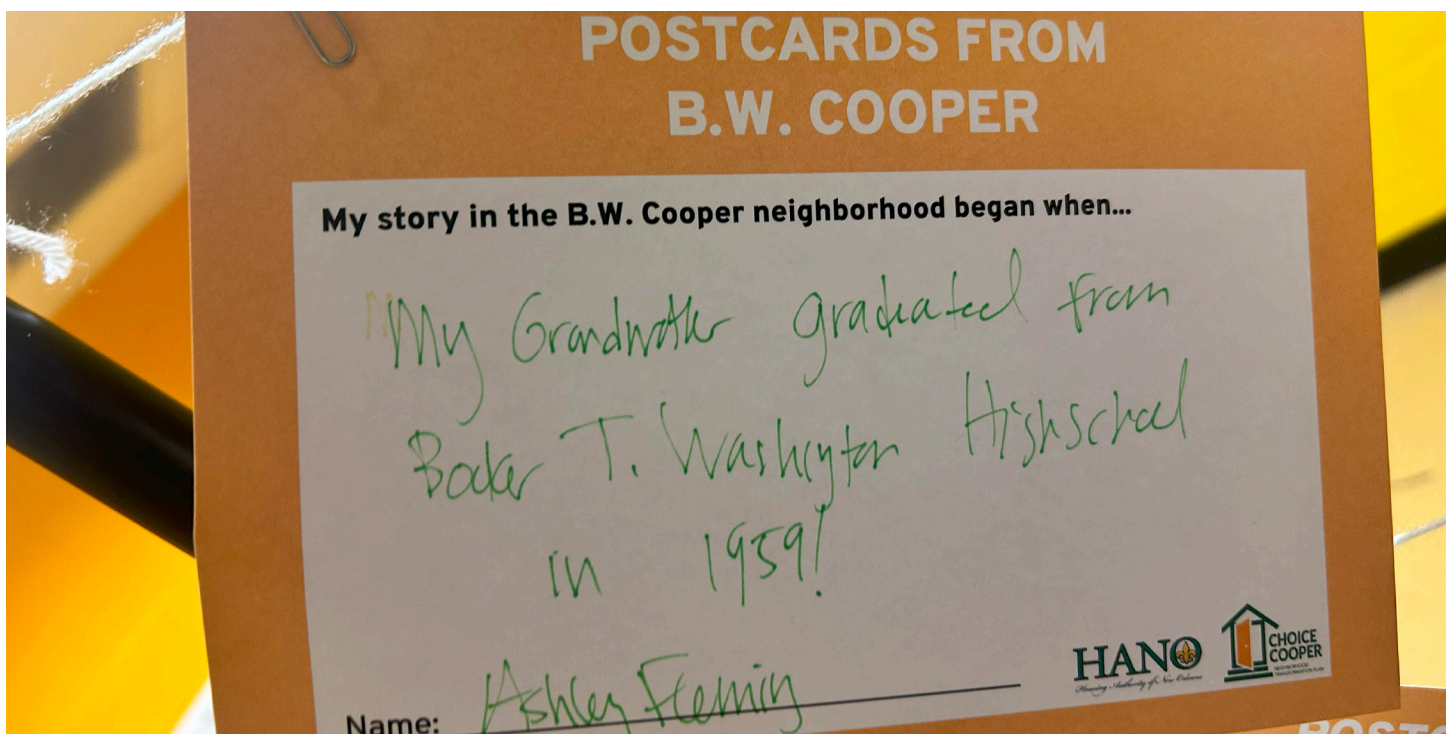 POSTCARDS FROM
B.W. COOPER
My story in the B.W. Cooper neighborhood began when...
My Grandmother graduated from
Booker T. Washington Highschool
in 1959!
HANO
Housing Authority of New Orleans
CHOICE
COOPER
NEIGHBORHOOD
TRANSFORMATION PLAN
Name: Ashley Fleming